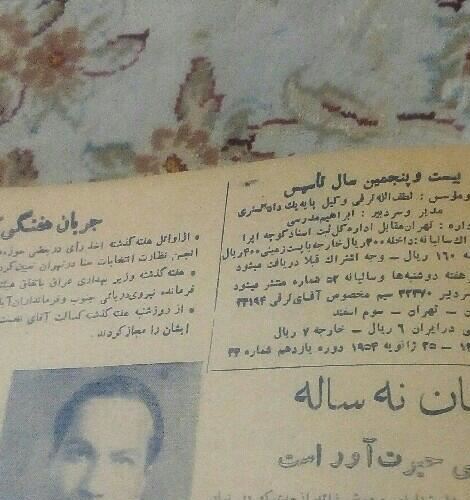 بیست و پنجمین سال تأسیس
ومؤسس : لطف‌اله ترقی وکیل پایه یک دادگستری
مدیر وسردبیر : ابراهیم مدرسی
داره : تهران مقابل اداره کل ثبت اسناد کوچه اپرا
اک سالیانه : داخله ۳۰۰ ریال خارجه با پست زمینی ۴۰۰ ریال
۱۶۰ ریال – وجه اشتراک قبلا دریافت میشود
هفته دوشنبه‌ها وسالیانه ۵۲ شماره منتشر میشود
ردبیر ۳۳۳۷۰ سیم مخصوص آقای ترقی ۳۳۱۹۴
ن – تهران – سوم اسفند
ی درایران ۶ ریال – خارجه ۷ ریال
– ۲۵ ژانویه ۱۹۵۴ دوره یازدهم شماره ۳۳
جریان هفتگی
از اوائل هفته گذشته اخذ رأی در بعضی حوزه
انجمن نظارت انتخابات منا در تهران تعیین گرد
هفته گذشته وزیر بهداری عراق باتفاق هیئت
فرمانده نیروی دریائی جنوب و فرمانداران آبا
از روز شنبه هفته گذشته کسالت آقای نخست
ایشان را مجاز کردند.
ان نه ساله
ی حیرت آور است